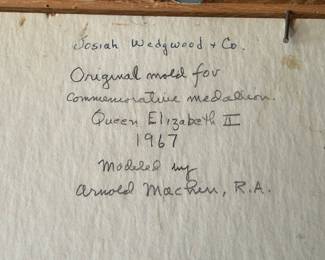 Josiah Wedgwood + Co.
Original mold for
Commemorative medalion.
Queen Elizabeth II
1967
Modeled by
Arnold Machin, R.A.